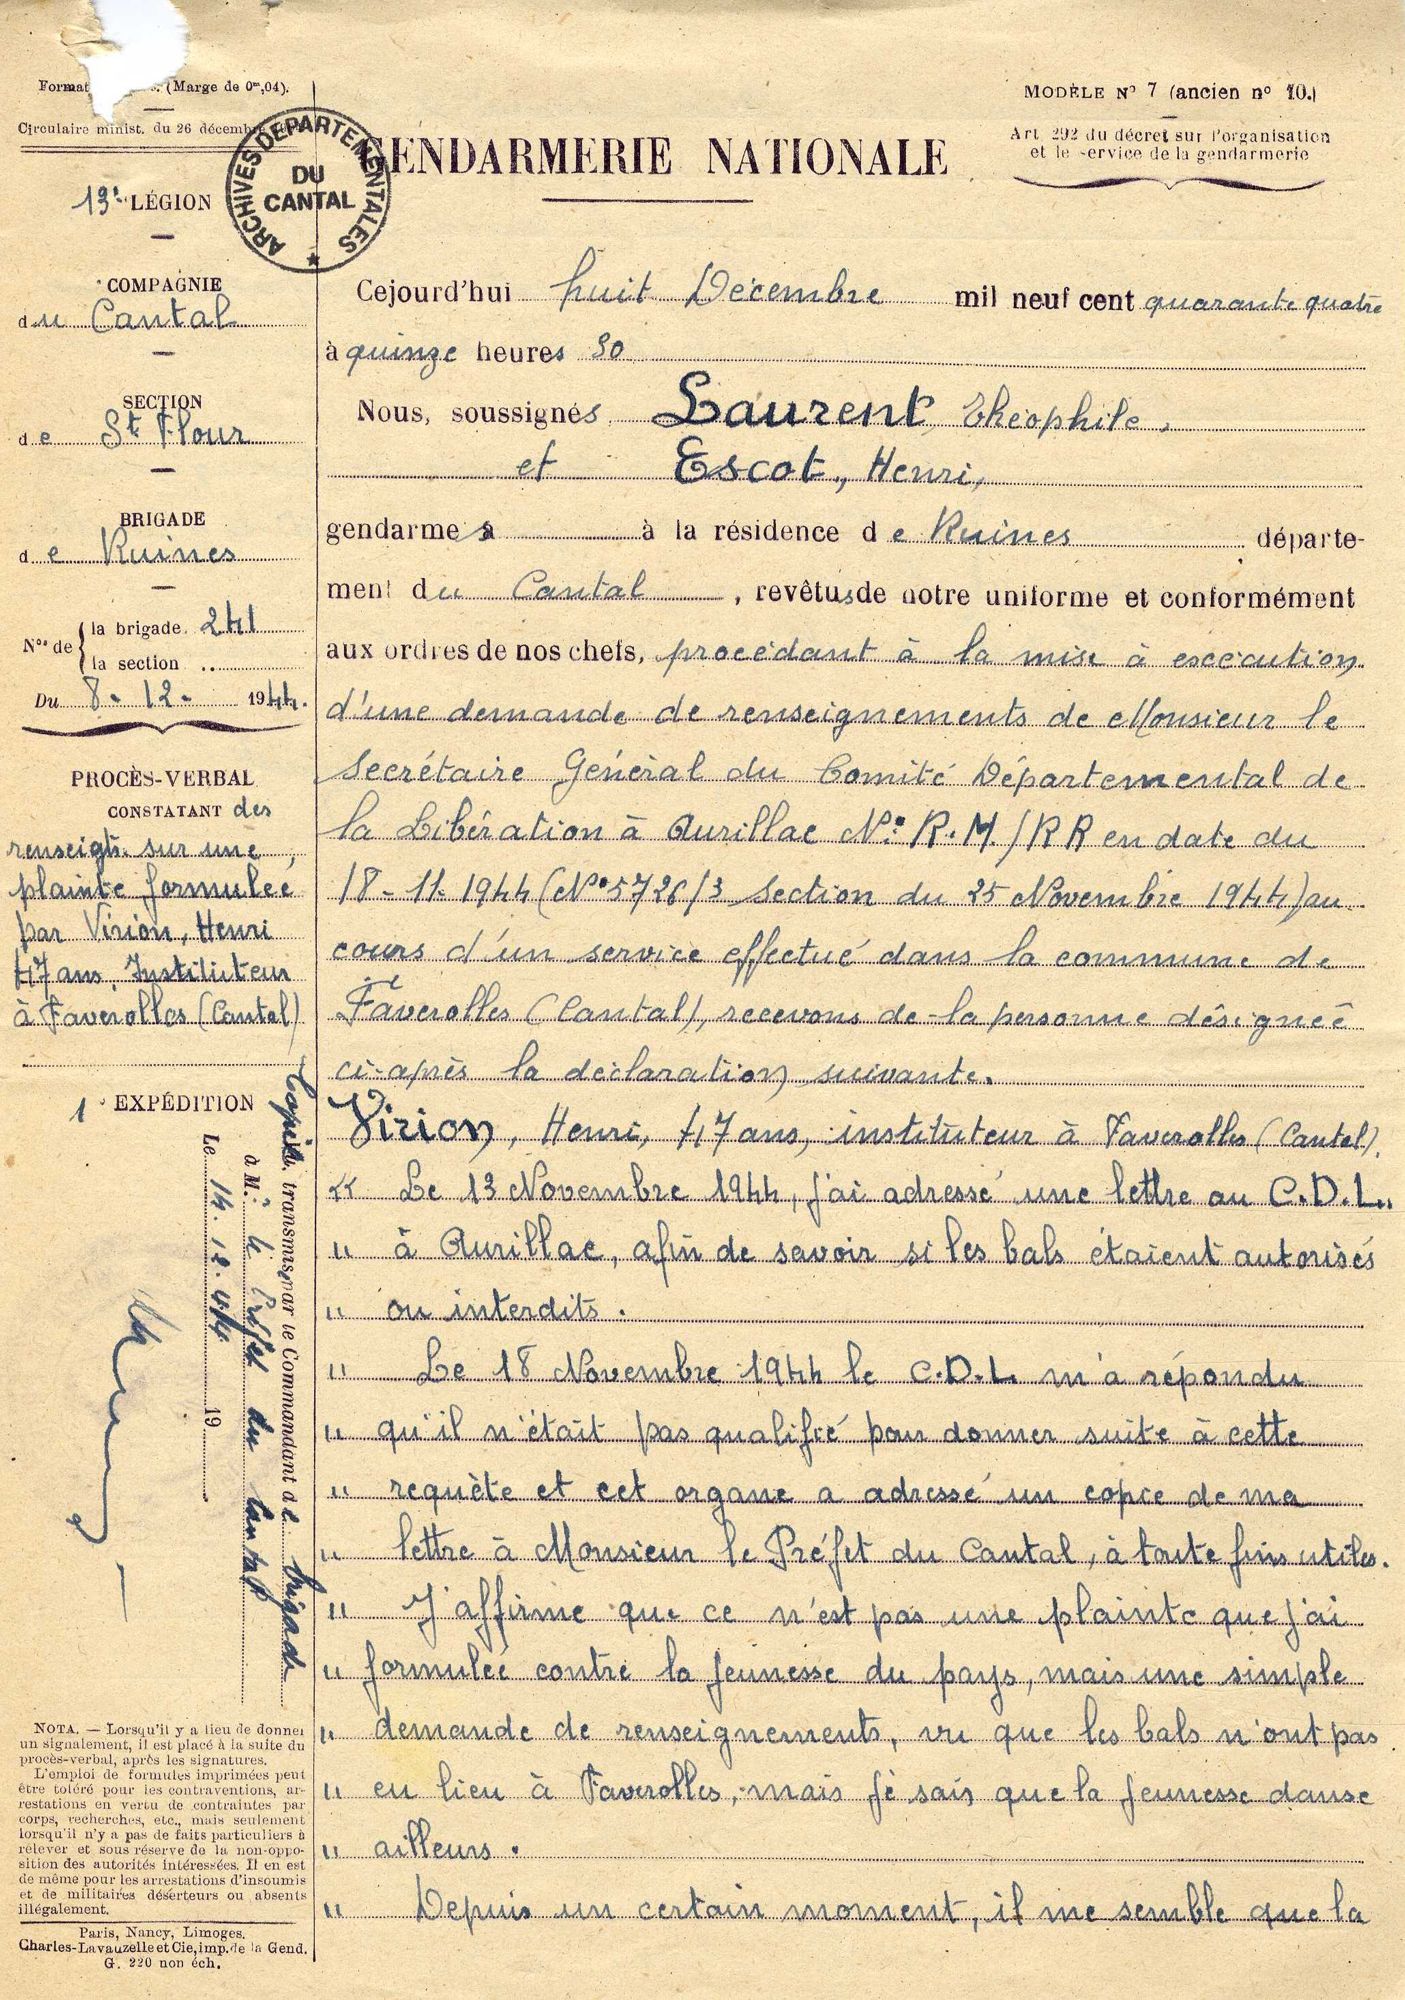 Format (Marge de 0ᵐ,04).
Circulaire minist. du 26 décembre
ARCHIVES DÉPARTEMENTALES
DU
CANTAL
13ᵉ LÉGION
COMPAGNIE
du Cantal
SECTION
de Sᵗ Flour
BRIGADE
de Ruines
Nᵒˢ de { la brigade 241
la section ..
Du 8-12- 1944.
PROCÈS-VERBAL
CONSTATANT des
renseigts. sur une
plainte formulée
par Virion, Henri
47 ans, Instituteur
à Faverolles (Cantal)
1ᵉ EXPÉDITION
Copie, transmise par le Commandant de brigade
à M. le Préfet du Cantal
Le 14.12.44 19
NOTA. — Lorsqu'il y a lieu de donner
un signalement, il est placé à la suite du
procès-verbal, après les signatures.
L'emploi de formules imprimées peut
être toléré pour les contraventions, ar-
restations en vertu de contraintes par
corps, recherches, etc., mais seulement
lorsqu'il n'y a pas de faits particuliers à
relever et sous réserve de la non-oppo-
sition des autorités intéressées. Il en est
de même pour les arrestations d'insoumis
et de militaires déserteurs ou absents
illégalement.
Paris, Nancy, Limoges.
Charles-Lavauzelle et Cie, imp. de la Gend.
G. 220 non éch.
MODÈLE Nº 7 (ancien nº 10.)
Art 292 du décret sur l'organisation
et le service de la gendarmerie
GENDARMERIE NATIONALE
Cejourd'hui huit Décembre mil neuf cent quarante quatre
à quinze heures 30
Nous, soussignés Laurent, Théophile,
et Escot, Henri,
gendarmes à la résidence de Ruines départe-
ment du Cantal, revêtus de notre uniforme et conformément
aux ordres de nos chefs, procédant à la mise à exécution
d'une demande de renseignements de Monsieur le
Secrétaire Général du Comité Départemental de
la Libération à Aurillac Nº: R.M./RR en date du
18-11-1944 (Nº5726/3 Section du 25 Novembre 1944) au
cours d'un service effectué dans la commune de
Faverolles (Cantal), recevons de la personne désignée
ci-après la déclaration suivante.
Virion, Henri, 47 ans, instituteur à Faverolles (Cantal).
« Le 13 Novembre 1944, j'ai adressé une lettre au C.D.L.
" à Aurillac, afin de savoir si les bals étaient autorisés
" ou interdits.
" Le 18 Novembre 1944 le C.D.L. m'a répondu
" qu'il n'était pas qualifié pour donner suite à cette
" requête et cet organe a adressé un copie de ma
" lettre à Monsieur le Préfet du Cantal, à toute fins utiles.
" J'affirme que ce n'est pas une plainte que j'ai
" formulée contre la jeunesse du pays, mais une simple
" demande de renseignements, vu que les bals n'ont pas
" eu lieu à Faverolles, mais je sais que la jeunesse danse
" ailleurs.
" Depuis un certain moment, il me semble que la